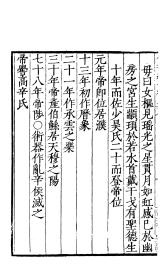 母曰女樞見瑤光之星貫月如虹感已於幽
房之宮生顓頊於若水首戴干戈有聖德生
十年而佐少昊氏二十而登帝位
元年帝即位居濮
十三年初作曆象
二十一年作承雲之樂
三十年帝產伯鯀居天穆之陽
七十八年帝陟○術器作亂辛侯滅之
帝嚳高辛氏